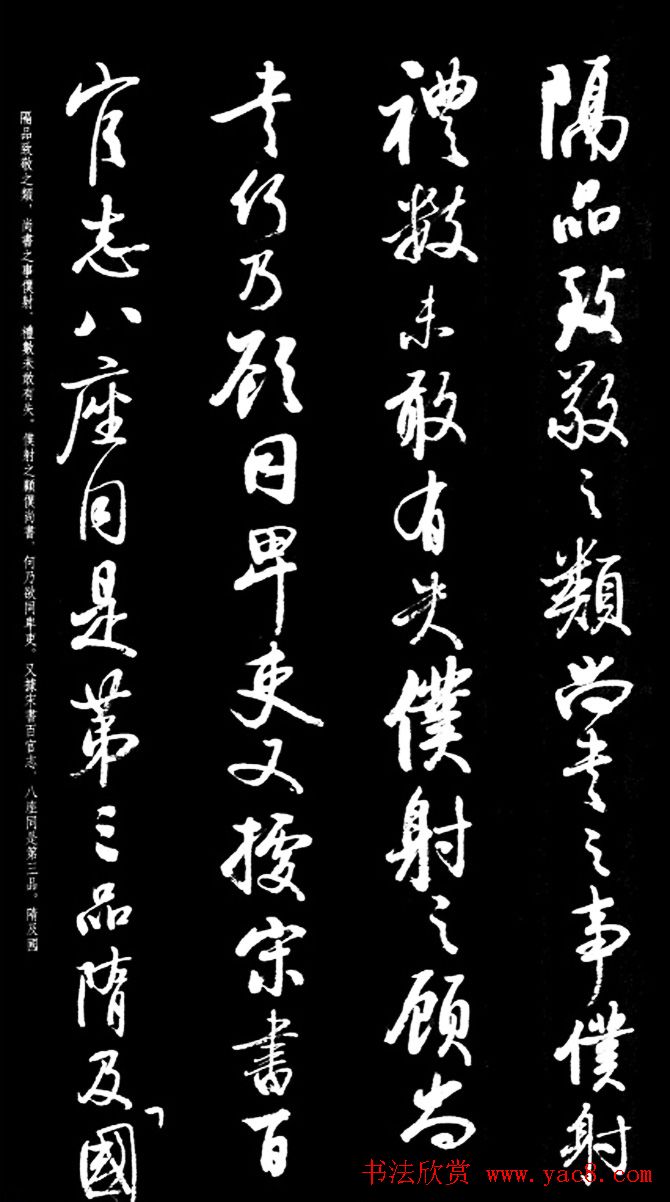 隔品致敬之類尚書之事僕射
禮數未敢有失僕射之顧尚
書何乃欲同卑吏又據宋書百
官志八座同是第三品隋及國
隔品致敬之類、尚書之事僕射、禮數未敢有失。僕射之顧僕尚書、何乃欲同卑吏。又據宋書百官志、八座同是第三品。隋及國
书法欣赏 www.yac8.com